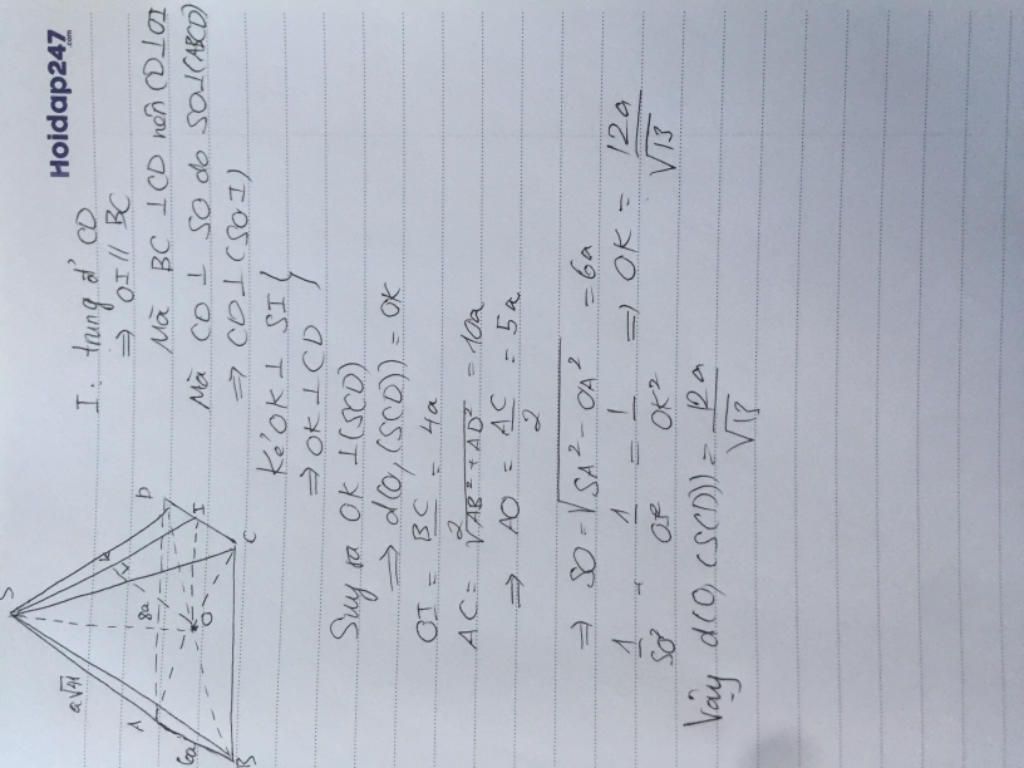 Hoidap247.com
I: trung đ' CD
⇒ OI // BC
Mà BC ⊥ CD nên CD ⊥ OI
Mà CD ⊥ SO do SO ⊥ (ABCD)
⇒ CD ⊥ (SOI)
Kẻ OK ⊥ SI }
⇒ OK ⊥ CD
Suy ra OK ⊥ (SCD)
⇒ d(O, (SCD)) = OK
OI = BC/2 = 4a
AC = √(AB² + AD²) = 10a
⇒ AO = AC/2 = 5a
⇒ SO = √(SA² - OA²) = 6a
1/SO² + 1/OI² = 1/OK² ⇒ OK = 12a/√13
Vậy d(O, (SCD)) = 12a/√13
S
a√41
A
8a
D
K
I
6a
O
B
C